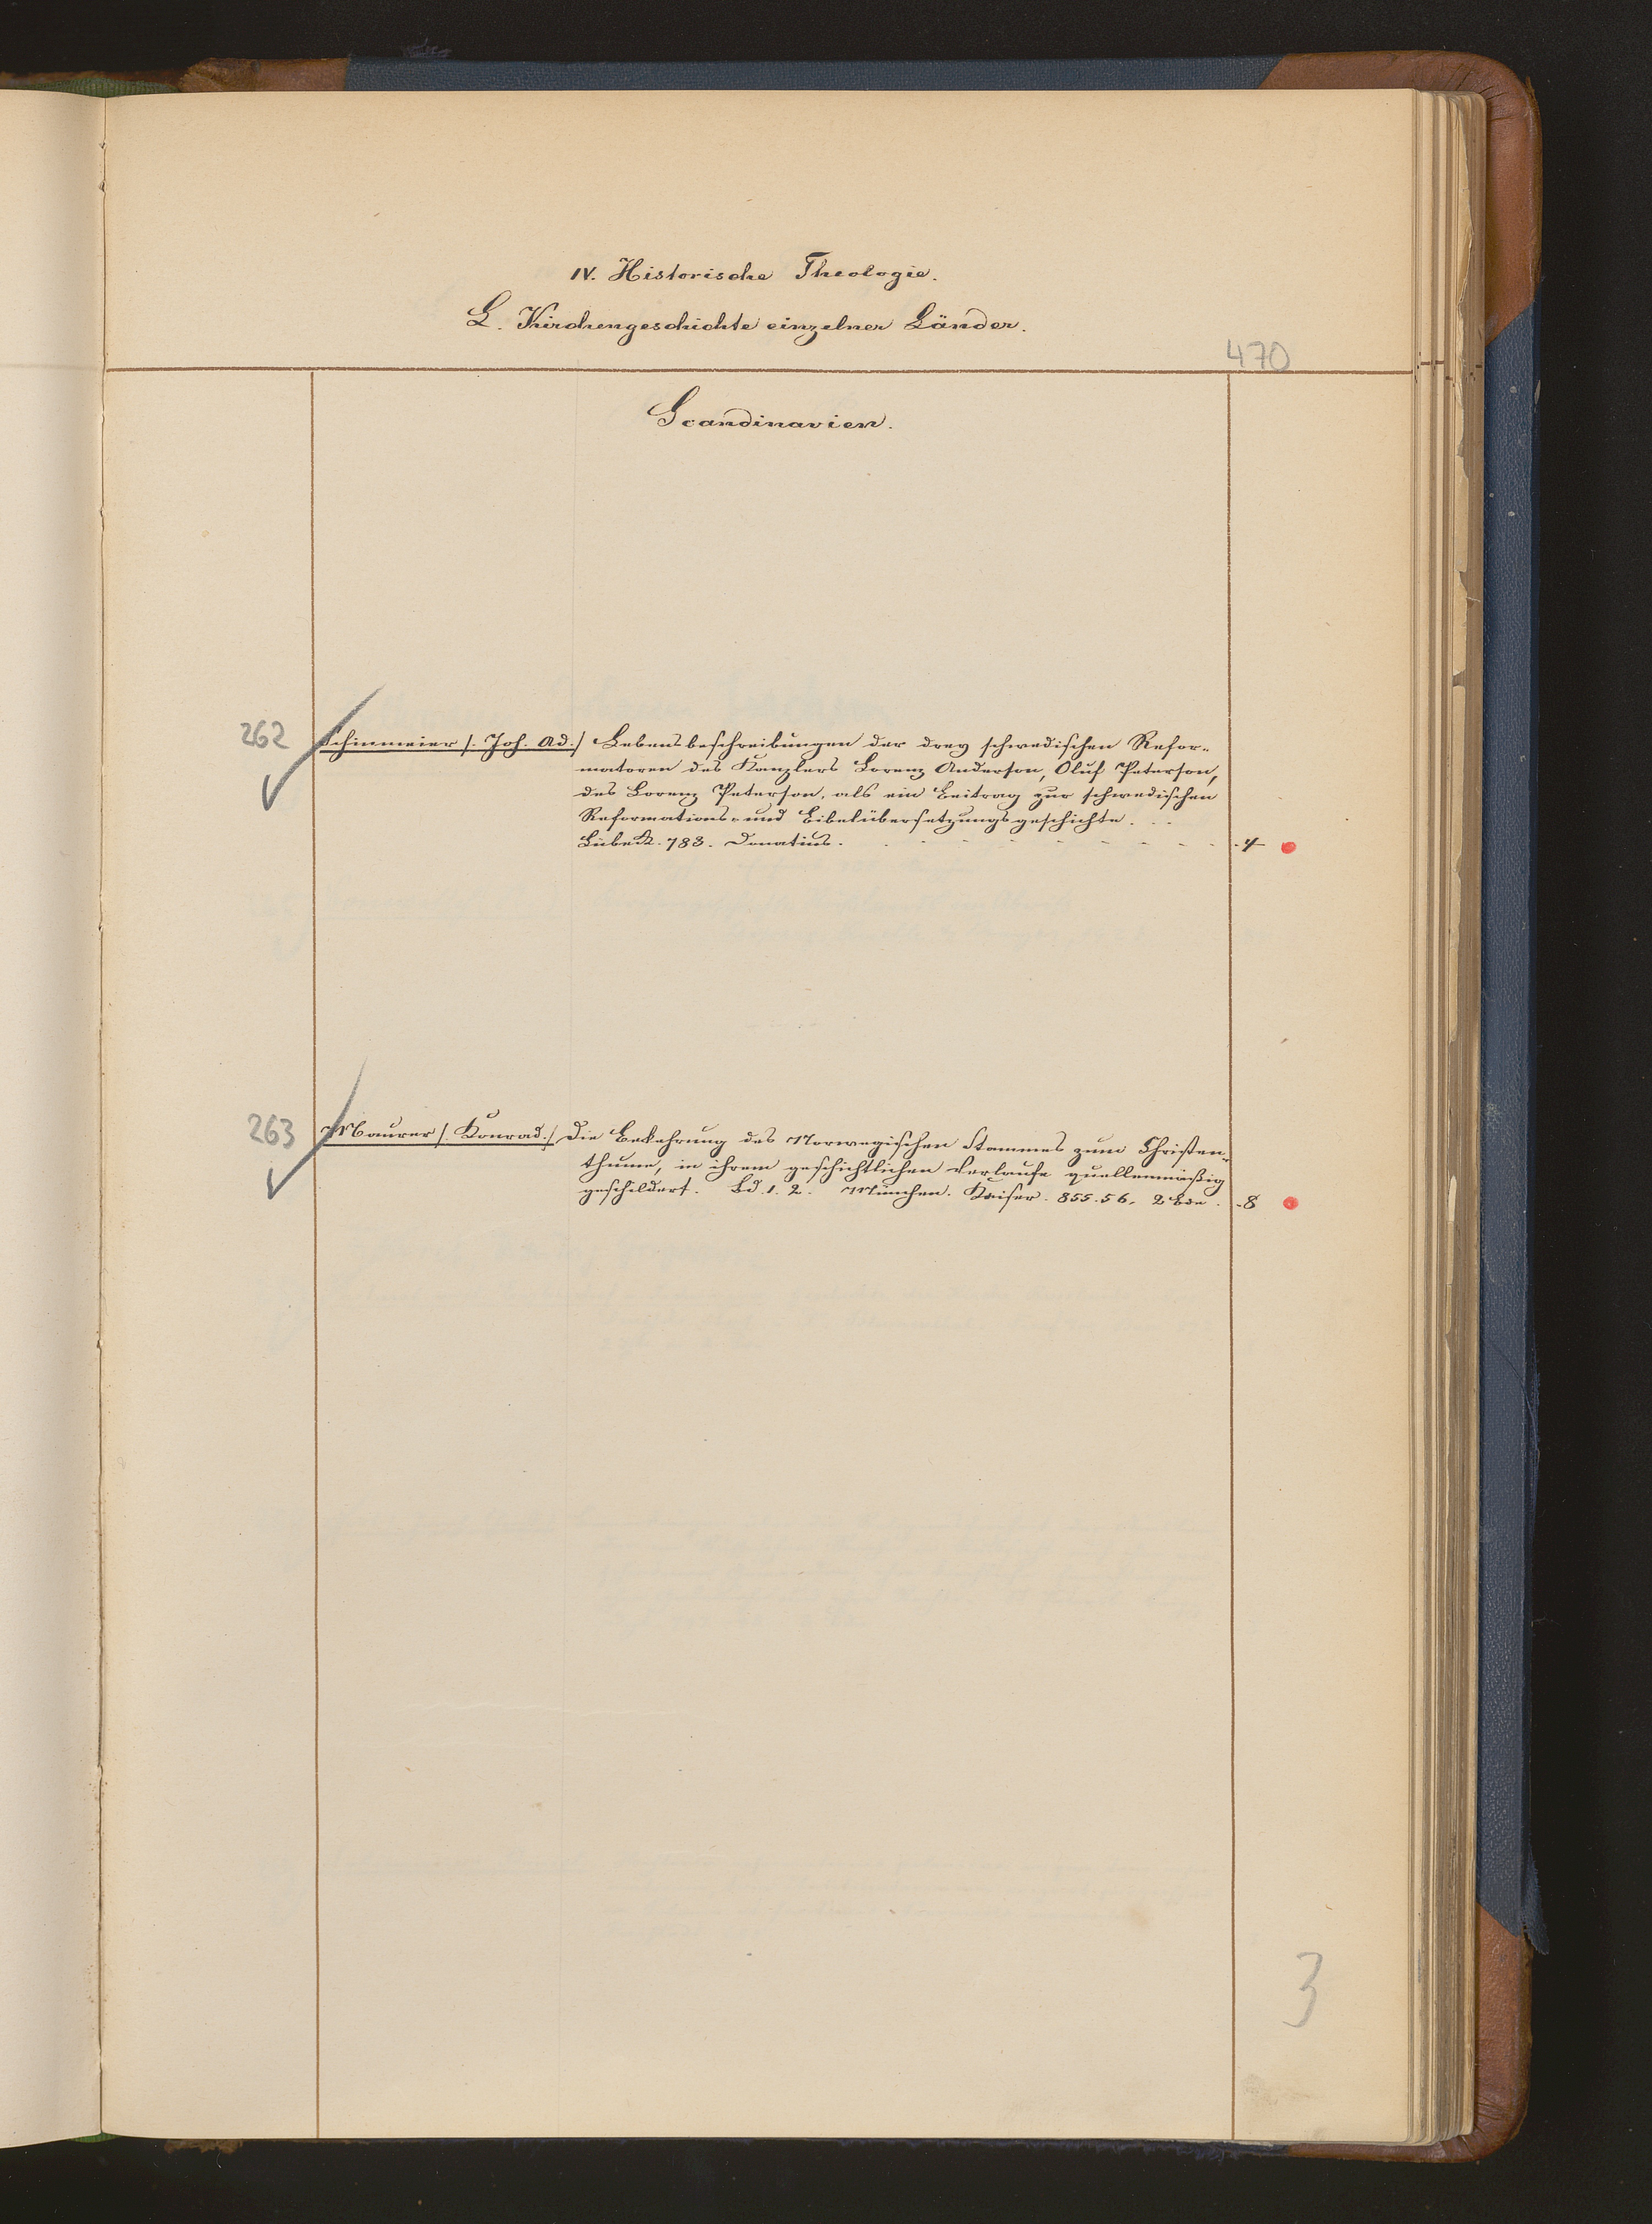 IV. Historische Theologie.
L. Kirchengeschichte einzelner Länder.
470
Scandinavien.
262 Schinmeier /. Joh. Ad./ Lebensbeschreibungen der drey schwedischen Refor-
matoren des Kanzlers Lorenz Anderson, Oluf Peterson,
des Lorenz Peterson, als ein Beitrag zur schwedischen
Reformations- und Bibelübersetzungsgeschichte. . .
Lübeck. 783. Donatius. - - - - - - - - - 4
263 Maurer /. Konrad./ Die Bekehrung des Norwegischen Stammes zum Christen-
thume, in ihrem geschichtlichen Verlaufe quellenmäßig
geschildert. Bd. 1. 2. München. Kaiser. 855. 56. 2 Bde. - 8
3